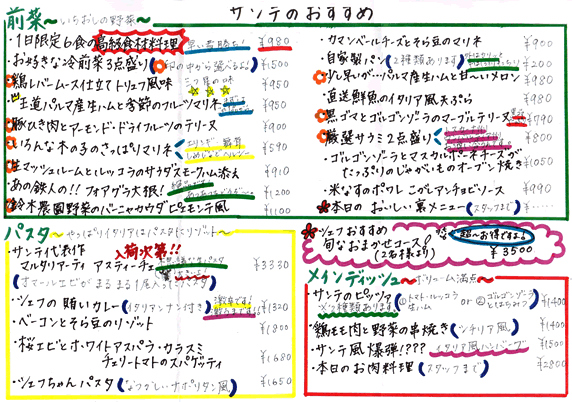 前菜～いちおしの野菜～
サンテのおすすめ
・1日限定6食の高級食材料理 早い者勝ち! ¥980
・お好きな冷前菜3点盛り(印の中から選べるよ!) ¥1500
鶏レバームース仕立てトリュフ風味 三ツ星の味 ¥950
王道パルマ産生ハムと季節のフルーツマリネ ¥950
豚ひき肉とアーモンド・ドライフルーツのテリーヌ ¥900
いろんな木の子のさっぱりマリネ ¥590
生マッシュルームとルッコラのサラダスモークハム添え ¥910
あの鉄人の!!フォアグラ大根! ¥1200
鈴木農園野菜のバーニャカウダピエモンテ風 ¥1100
・カマンベールチーズとそら豆のマリネ ¥900
・自家製パン(2種類あります) ¥200
ちょい早いがパルマ産生ハムと甘～いメロン ¥980
・直送鮮魚のイタリア風天ぷら ¥980
黒ゴマとゴルゴンゾーラのマーブルテリーヌ ¥790
厳選サラミ2点盛り ¥800
・ゴルゴンゾーラとマスカルポーネチーズが
たっぷりのじゃがいものオーブン焼き ¥1050
・米なすのポワレ こがしアンチョビソース ¥990
本日の おいしい 裏メニュー(スタッフまで)
パスタ～やっぱりイタリアはパスタとリゾット～
・サンテ代表作 入荷次第!!
マルタリアーティ アスティーチェ ¥3330
(オマールエビがまるまる1尾入ったパスタ)
・シェフの賄いカレー(イタリアンナン付き) 激辛です! ¥1320
・ベーコンとそら豆のリゾット ¥1800
・桜エビとホワイトアスパラ・カラスミ
チェリートマトのスパゲッティ ¥1680
・シェフちゃんパスタ(なつかしいナポリタン風) ¥1650
シェフおすすめ 超～お得ですよ!
旬なおまかせコース!
(2名様より) ¥3500
メインディッシュ～ボリューム満点～
・サンテのピッツァ ①トマト・ルッコラ 生ハム or ②ゴルゴンゾーラとはちみつ ¥1400
鶏もも肉と野菜の串焼き(シチリア風) ¥1400
・サンテ風爆弾!??? イタリア風ハンバーグ ¥1500
・本日のお肉料理(スタッフまで) ¥2800